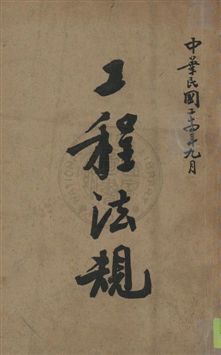 中華民國二十四年九月
工程法規